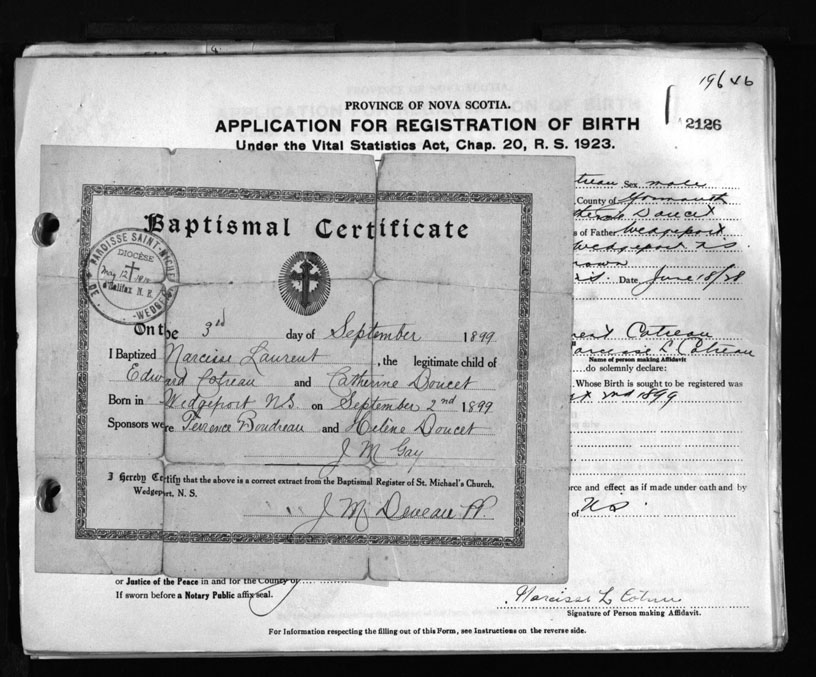 19646
PROVINCE OF NOVA SCOTIA.
APPLICATION FOR REGISTRATION OF BIRTH
2126
Under the Vital Statistics Act, Chap. 20, R. S. 1923.
Sex male
County of Yarmouth
Doucet
s of Father Wedgeport
Wedgeport N S.
Date June 18/38
Cotreau
L Cotreau
Name of person making Affidavit
do solemnly declare:
Whose Birth is sought to be registered was
2nd 1899
rce and effect as if made under oath and by
of N S.
Baptismal Certificate
PAROISSE SAINT-MICHEL
DIOCÈSE
May 12
Halifax N. E.
DE WEDGEP
On the 3rd day of September 1899
I Baptized Narcisse Laurent, the legitimate child of
Edward Cotreau and Catherine Doucet
Born in Wedgeport NS on September 2nd 1899
Sponsors were Terrence Boudreau and Hélène Doucet
J M Gay
I Hereby Certify that the above is a correct extract from the Baptismal Register of St. Michael's Church,
Wedgeport, N. S.
J M Deveau PP.
or Justice of the Peace in and for the County of
If sworn before a Notary Public affix seal.
Narcisse L Cotreau
Signature of Person making Affidavit.
For Information respecting the filling out of this Form, see Instructions on the reverse side.